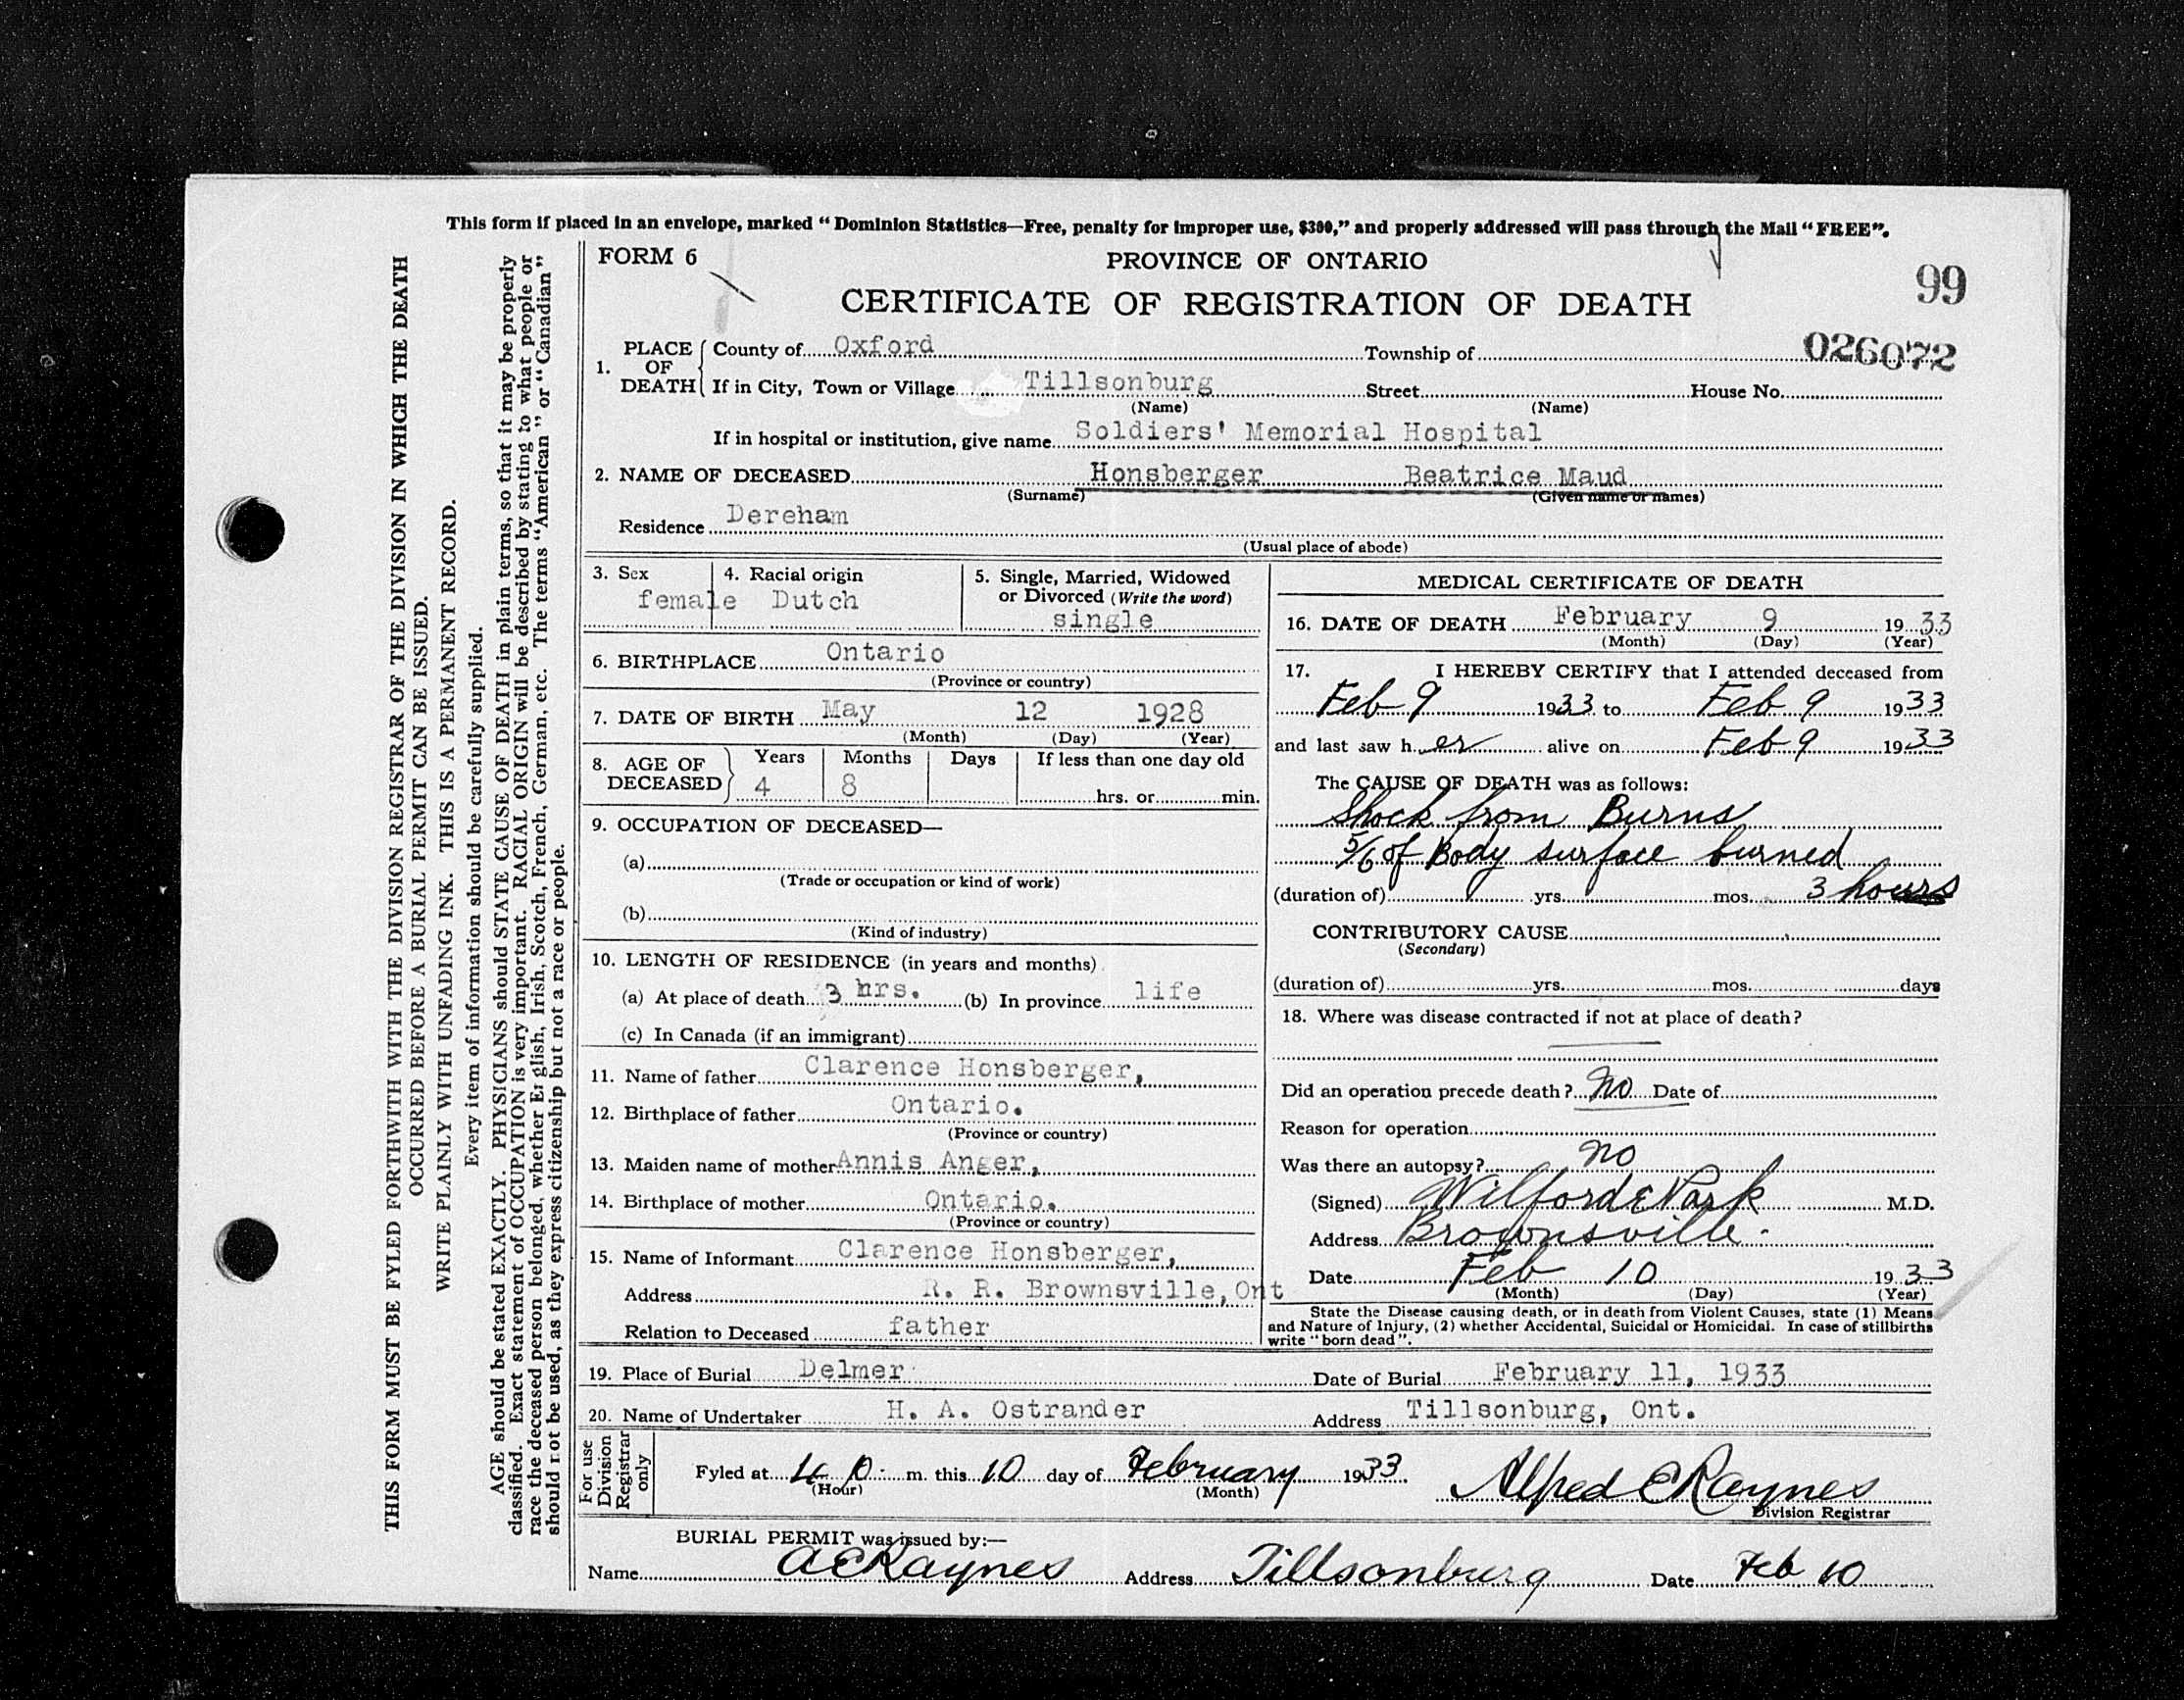 This form if placed in an envelope, marked "Dominion Statistics—Free, penalty for improper use, $300," and properly addressed will pass through the Mail "FREE".
FORM 6
PROVINCE OF ONTARIO
99
CERTIFICATE OF REGISTRATION OF DEATH
026072
1. PLACE OF DEATH County of Oxford Township of
If in City, Town or Village Tillsonburg Street House No.
(Name) (Name)
If in hospital or institution, give name Soldiers' Memorial Hospital
2. NAME OF DECEASED Honsberger Beatrice Maud
(Surname) (Given name or names)
Residence Dereham
(Usual place of abode)
3. Sex female
4. Racial origin Dutch
5. Single, Married, Widowed or Divorced (Write the word)
single
6. BIRTHPLACE Ontario
(Province or country)
7. DATE OF BIRTH May 12 1928
(Month) (Day) (Year)
8. AGE OF DECEASED Years Months Days If less than one day old
4 8 hrs. or min.
9. OCCUPATION OF DECEASED—
(a)
(Trade or occupation or kind of work)
(b)
(Kind of industry)
10. LENGTH OF RESIDENCE (in years and months)
(a) At place of death 3 hrs. (b) In province life
(c) In Canada (if an immigrant)
11. Name of father Clarence Honsberger,
12. Birthplace of father Ontario.
(Province or country)
13. Maiden name of mother Annis Anger,
14. Birthplace of mother Ontario.
(Province or country)
15. Name of Informant Clarence Honsberger,
Address R. R. Brownsville, Ont
Relation to Deceased father
MEDICAL CERTIFICATE OF DEATH
16. DATE OF DEATH February 9 1933
(Month) (Day) (Year)
17. I HEREBY CERTIFY that I attended deceased from
Feb 9 1933 to Feb 9 1933
and last saw her alive on Feb 9 1933
The CAUSE OF DEATH was as follows:
Shock from Burns
5/6 of Body surface burned
(duration of) yrs. mos. 3 hours
CONTRIBUTORY CAUSE
(Secondary)
(duration of) yrs. mos. days
18. Where was disease contracted if not at place of death?
Did an operation precede death? No Date of
Reason for operation
Was there an autopsy? no
(Signed) Wilford E Park M.D.
Address Brownsville.
Date Feb 10 1933
(Month) (Day) (Year)
State the Disease causing death, or in death from Violent Causes, state (1) Means
and Nature of Injury, (2) whether Accidental, Suicidal or Homicidal. In case of stillbirths
write "born dead".
19. Place of Burial Delmer Date of Burial February 11, 1933
20. Name of Undertaker H. A. Ostrander Address Tillsonburg, Ont.
For use Division Registrar only
Fyled at 4 p. m. this 10 day of February 1933 Alfred E Raynes
(Hour) (Month) Division Registrar
BURIAL PERMIT was issued by:—
Name A E Raynes Address Tillsonburg Date Feb 10
THIS FORM MUST BE FYLED FORTHWITH WITH THE DIVISION REGISTRAR OF THE DIVISION IN WHICH THE DEATH
OCCURRED BEFORE A BURIAL PERMIT CAN BE ISSUED.
WRITE PLAINLY WITH UNFADING INK. THIS IS A PERMANENT RECORD.
Every item of information should be carefully supplied.
AGE should be stated EXACTLY. PHYSICIANS should STATE CAUSE OF DEATH in plain terms, so that it may be properly
classified. Exact statement of OCCUPATION is very important. RACIAL ORIGIN will be described by stating to what people or
race the deceased person belonged, whether English, Irish, Scotch, French, German, etc. The terms "American" or "Canadian"
should not be used, as they express citizenship but not a race or people.